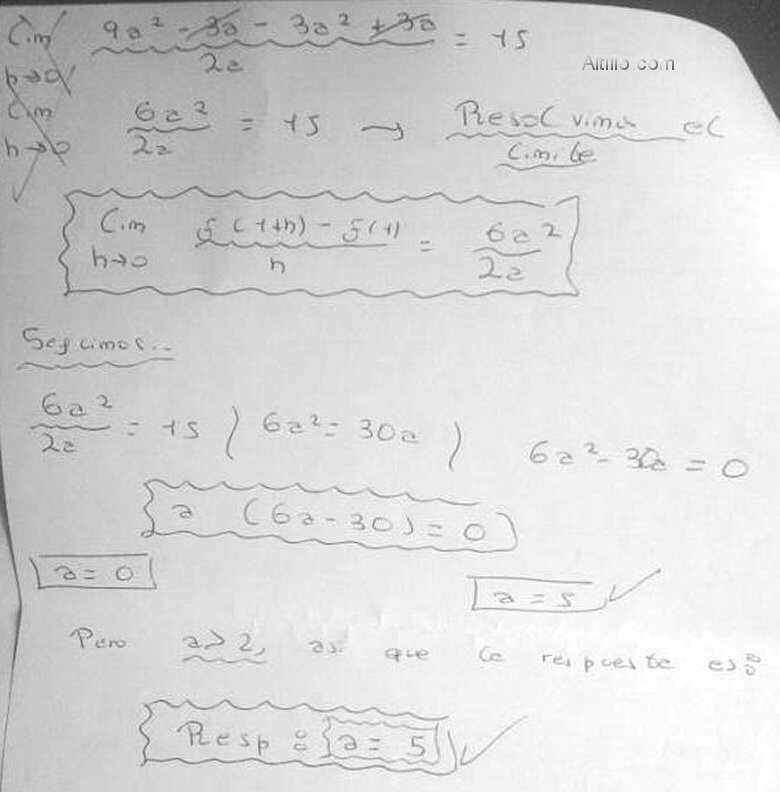 Altillo.com
Lim h→0 (9a² - 3a - 3a² + 3a) / 2a = 15
Lim h→0 6a² / 2a = 15 → Resolvimos el
Limite
Lim h→0 (f(1+h) - f(1)) / h = 6a² / 2a
Seguimos...
6a² / 2a = 15 ) 6a² = 30a ) 6a² - 30a = 0
a (6a - 30) = 0
a = 0 a = 5 ✓
Pero a > 2, asi que la respuesta es:
Resp: a = 5 ✓